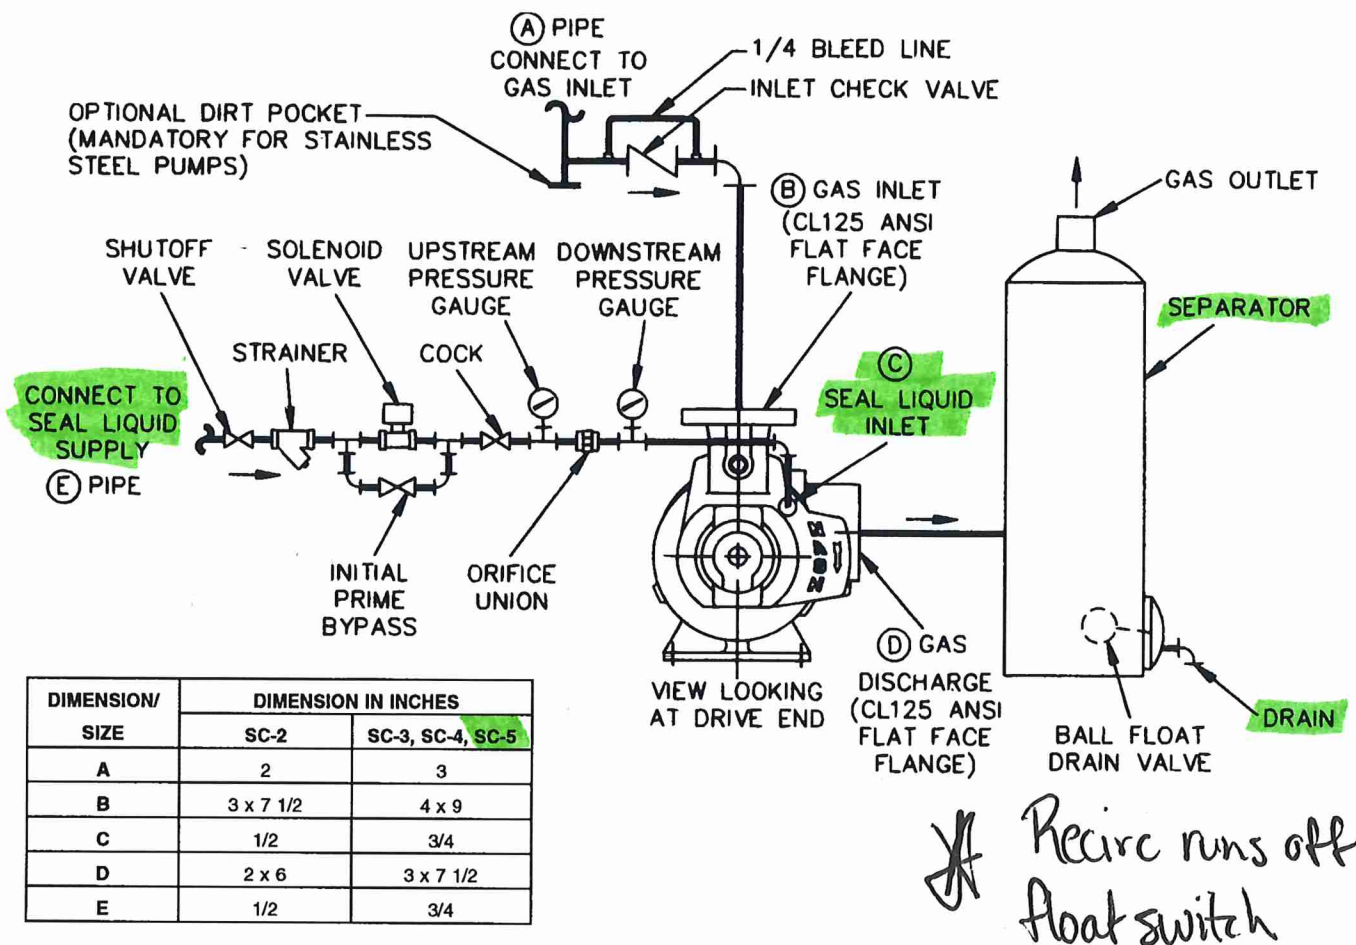 Ⓐ PIPE
CONNECT TO
GAS INLET
1/4 BLEED LINE
INLET CHECK VALVE
OPTIONAL DIRT POCKET
(MANDATORY FOR STAINLESS
STEEL PUMPS)
Ⓑ GAS INLET
(CL125 ANSI
FLAT FACE
FLANGE)
GAS OUTLET
SHUTOFF
VALVE
SOLENOID
VALVE
UPSTREAM
PRESSURE
GAUGE
DOWNSTREAM
PRESSURE
GAUGE
SEPARATOR
STRAINER
COCK
Ⓒ
SEAL LIQUID
INLET
CONNECT TO
SEAL LIQUID
SUPPLY
Ⓔ PIPE
NASH
INITIAL
PRIME
BYPASS
ORIFICE
UNION
VIEW LOOKING
AT DRIVE END
Ⓓ GAS
DISCHARGE
(CL125 ANSI
FLAT FACE
FLANGE)
BALL FLOAT
DRAIN VALVE
DRAIN
DIMENSION/ SIZE DIMENSION IN INCHES
SC-2 SC-3, SC-4, SC-5
A 2 3
B 3 x 7 1/2 4 x 9
C 1/2 3/4
D 2 x 6 3 x 7 1/2
E 1/2 3/4
Recirc runs off
float switch